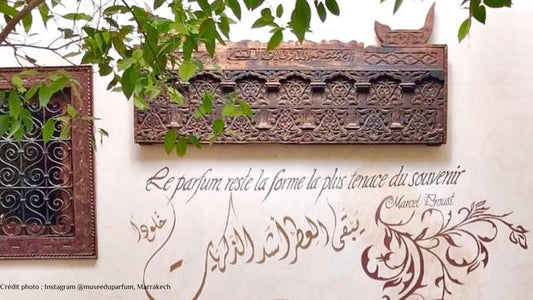 Le parfum reste la forme la plus tenace du souvenir
Marcel Proust
يبقى العطر أشد الذكريات خلودا
Crédit photo : Instagram @museeduparfum, Marrakech